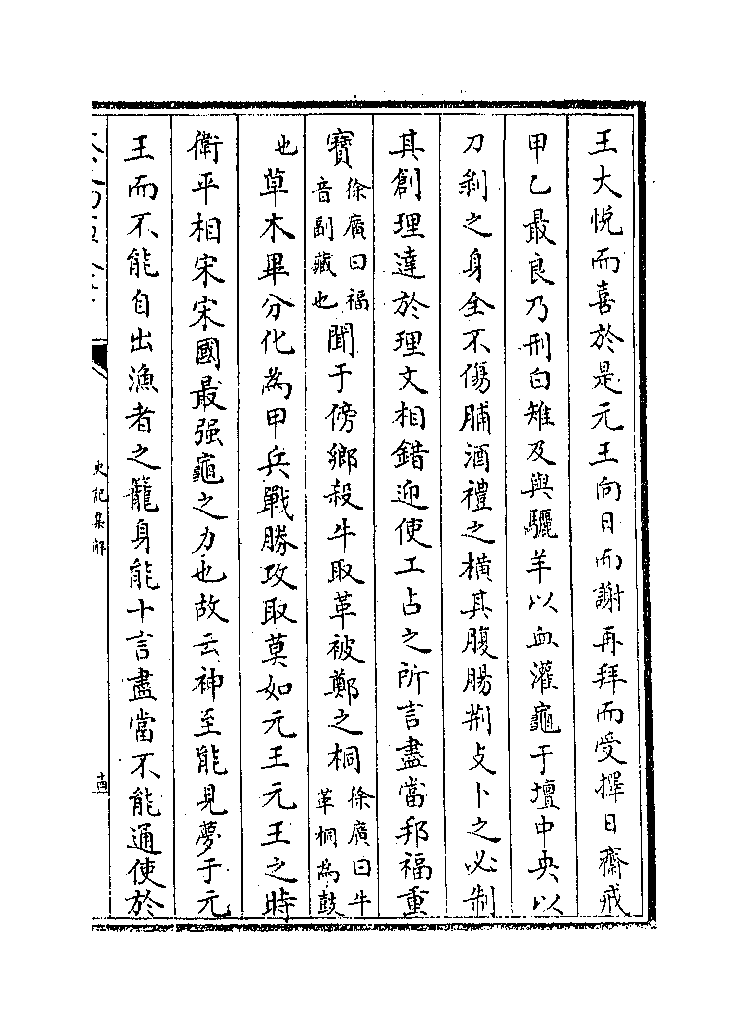 王大悅而喜於是元王向日而謝再拜而受擇日齋戒
甲乙最良乃刑白雉及與驪羊以血灌龜于壇中央以
刀剝之身全不傷脯酒禮之橫其腹腸荆支卜之必制
其創理達於理文相錯迎使工占之所言盡當邦福重
寶徐廣曰福音副藏也聞于傍鄉殺牛取革被鄭之桐徐廣曰牛革桐為鼓
也草木畢分化為甲兵戰勝攻取莫如元王元王之時
衛平相宋宋國最强龜之力也故云神至能見夢于元
王而不能自出漁者之籠身能十言盡當不能通使於
史記集解
十四